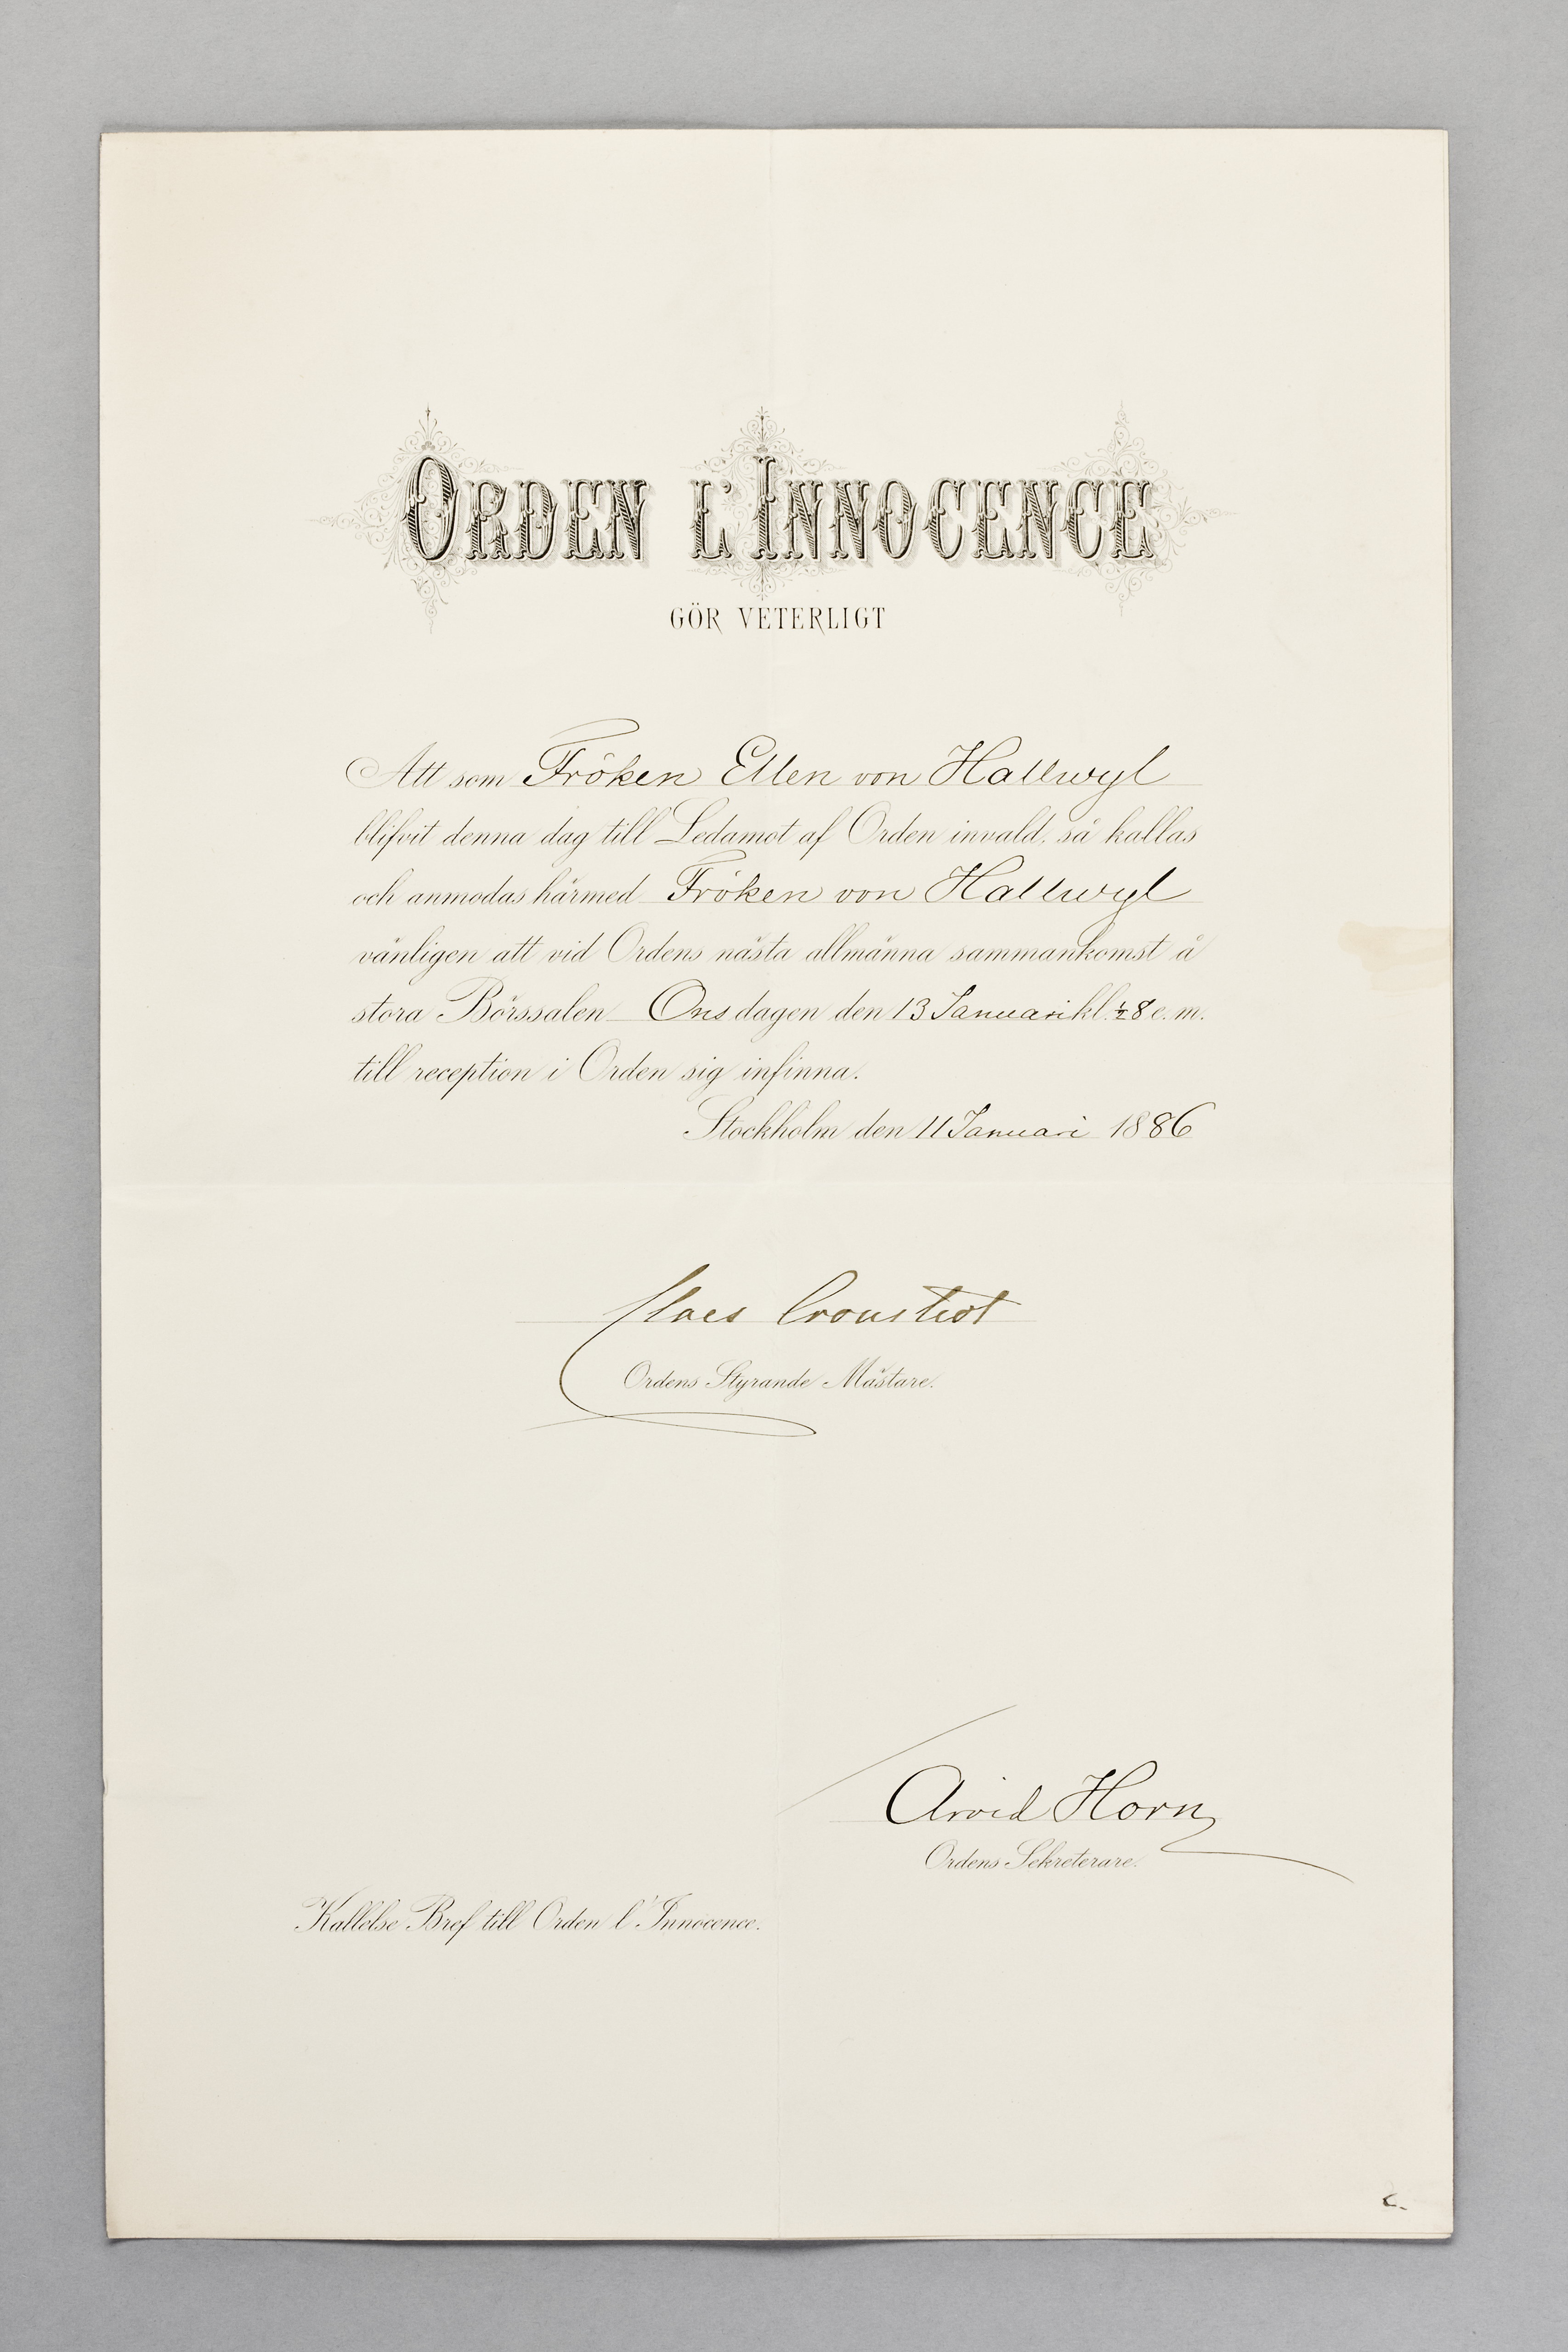 ORDEN L'INNOCENCE
GÖR VETERLIGT
Att som Fröken Ellen von Hallwyl
blifvit denna dag till Ledamot af Orden invald, så kallas
och anmodas härmed Fröken von Hallwyl
vänligen att vid Ordens nästa allmänna sammankomst å
stora Börssalen Onsdagen den 13 Januari kl. ½ 8 e. m.
till reception i Orden sig infinna.
Stockholm den 11 Januari 1886
Claes Cronstedt
Ordens Styrande Mästare.
Arvid Horn
Ordens Sekreterare.
Kallelse Bref till Orden l'Innocence.